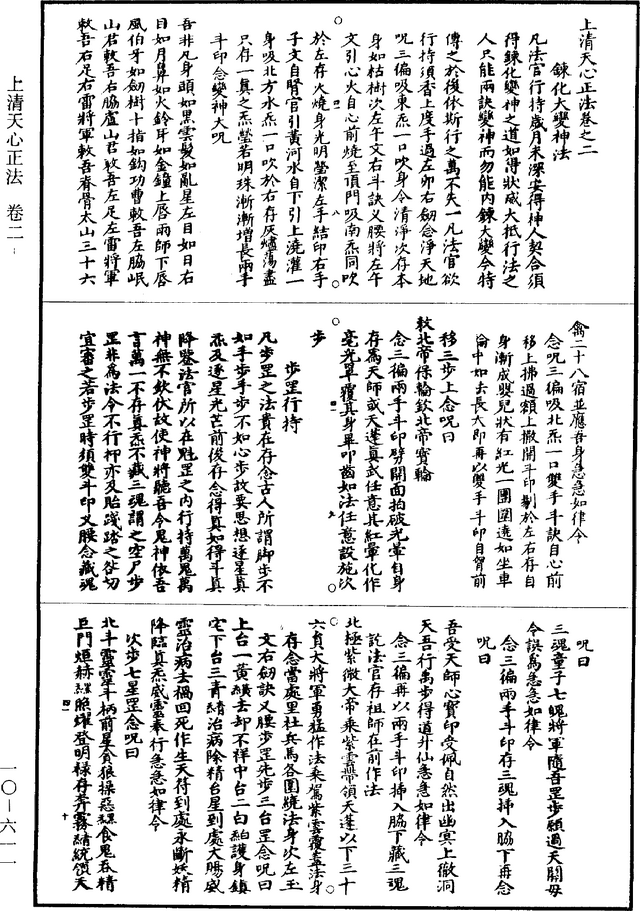 上清天心正法卷之二
鍊化大變神法
凡法官行持歲月未深安得神人契合須
得鍊化變神之道如得狀威大抵行法之
人只能兩訣變神而勿能內鍊大變今特
傳之於後依斯行之萬不失一凡法官欲
行持須香上度手過左卯右劒念淨天地
呪三徧吸東炁一口吹身令清淨次存本
身如枯樹次左午文右斗訣叉腰將左午
文引心火自心前燒至頂門吸南炁同吹
於左存火燒身光明瑩潔左手結印右手
子文自腎宮引黃河水自下引上澆灌一
身吸北方水炁一口吹於右存灰燼蕩盡
只存一真之炁瑩若明珠漸漸增長兩手
斗印念變神大呪
吾非凡身頭如黑雲髮如亂星左目如日右
目如月鼻如火鈴耳如金鐘上唇雨師下唇
風伯牙如劒樹十指如鈎功曹敕吾左脇岷
山君敕吾右脇廬山君敕吾左足左雷將軍
敕吾右足右雷將軍敕吾脊骨太山三十六
禽二十八宿並應吾身急急如律令
念呪三徧吸北炁一口雙手斗訣自心前
移上拂過額上撒開斗印剔於左右存自
身漸成嬰兒狀有紅光一團圍遶如坐車
輪中如去長大即再以雙手斗印自胷前
移三步上念呪曰
敕北帝倏輪欽北帝寶輪
念三徧兩手斗印劈開面拍破光暈自身
存為天師或天蓬真武任意其紅暈化作
毫光罩覆真身畢叩齒如法任意設施次
步
步罡行持
凡步罡之法貴在存念古人所謂脚步不
如手步手步不如心步故要思想逐星真
炁及逐星光芒前後存念得真如得斗真
降鑒法官所以在魁罡之內行持萬鬼萬
神無不欽伏故使神將聽吾令鬼神依吾
言萬一不存真炁不藏三魂謂之空尸步
罡非為法令不行抑亦及貽踐踏之咎切
宜審之若步罡時須雙斗印叉腰念藏魂
呪曰
三魂童子七魄將軍隨吾罡步願過天關毋
令誤為急急如律令
念三徧兩手斗印存三魂揷入脇下再念
呪曰
吾受天師心寶印受佩自然出幽冥上徹洞
天吾行萬步得道升仙急急如律令
念三徧再以兩手斗印揷入脇下藏三魂
訖法官存祖師在前作法
北極紫微大帝乘紫雲帶領天蓬以下三十
六負大將軍勇猛作法乘駕紫雲覆蓋法身
存念當處里社兵馬各圍繞法身次左玉
文右劒訣叉腰步罡先步三台罡念呪曰
上台一黃纈去却不祥中台二白紬護身鎮
宅下台三青綃治病除精台星到處大賜威
靈治病去禍囘死作生天符到處永斷妖精
降臨真炁威靈奉行急急如律令
次步七星罡念呪曰
北斗靈靈斗柄前星貪狼操惡䰢食鬼吞精
巨門烜赫䰢照燿登明祿存奔霧綃統領天
上清天心正法　卷二
一〇－六一一